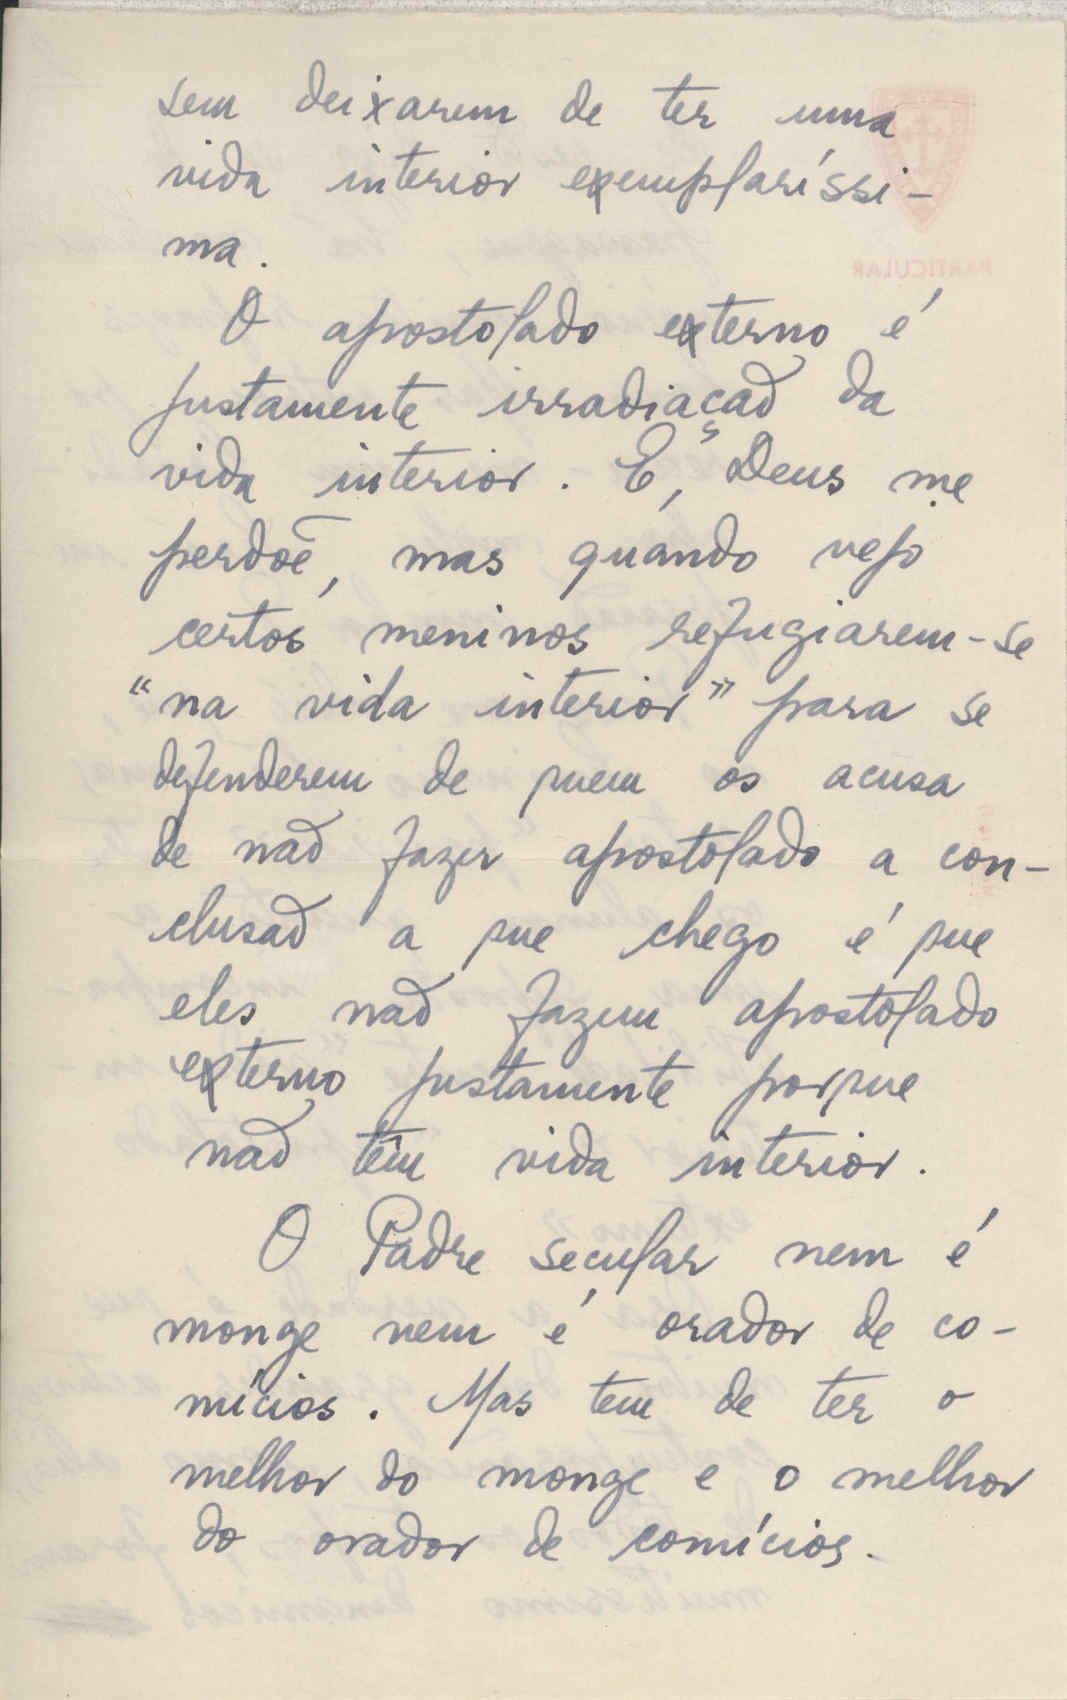 sem deixarem de ter uma
vida interior exemplaríssi-
ma.
O apostolado externo é
justamente irradiação da
vida interior. E, Deus me
perdoe, mas quando vejo
certos meninos refugiarem-se
"na vida interior" para se
defenderem de quem os acusa
de não fazer apostolado a con-
clusão a que chego é que
eles não fazem apostolado
externo justamente porque
não têm vida interior.
O Padre secular nem é
monge nem é orador de co-
mícios. Mas tem de ter o
melhor do monge e o melhor
do orador de comícios.
PARTICULAR